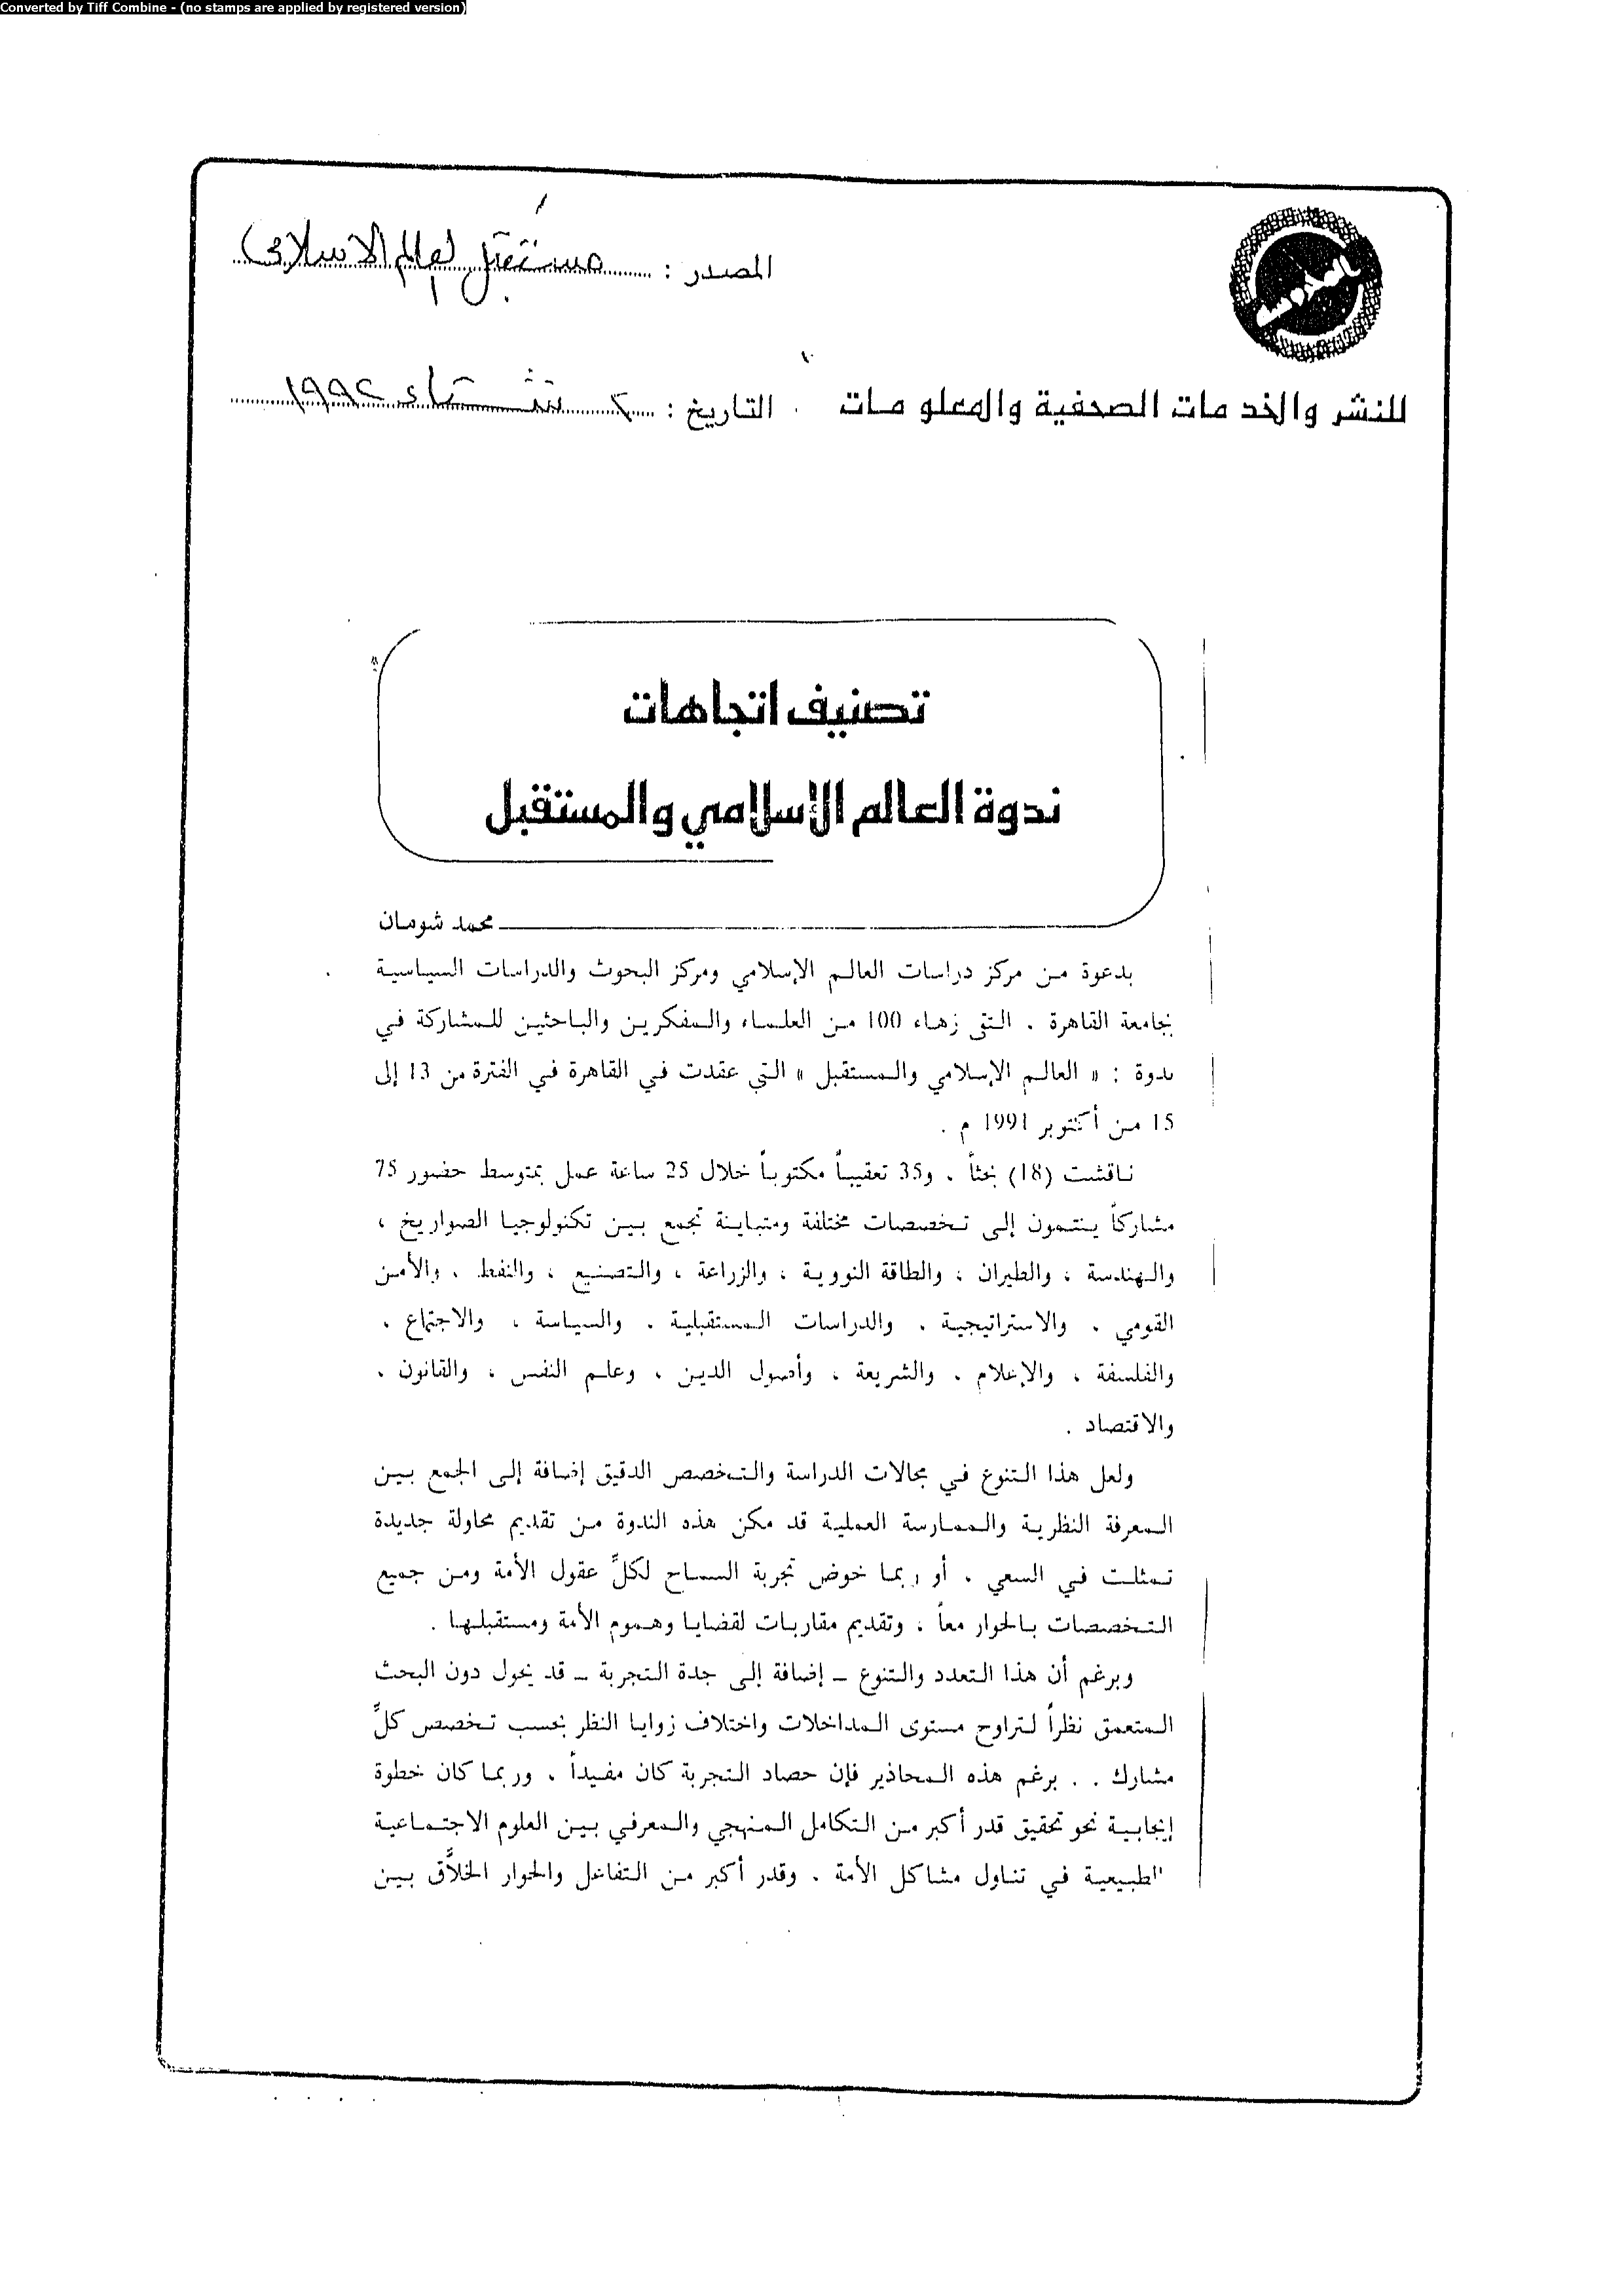 Converted by Tiff Combine - (no stamps are applied by registered version)
المصدر : مستقبل العالم الاسلامى
للنشر والخدمات الصحفية والمعلومات
التاريخ : ٢ شتاء ١٩٩٢
تصنيف اتجاهات
ندوة العالم الإسلامي والمستقبل
محمد شومان
بدعوة من مركز دراسات العالم الإسلامي ومركز البحوث والدراسات السياسية
بجامعة القاهرة . التقى زهاء 100 من العلماء والمفكرين والباحثين للمشاركة في
ندوة : « العالم الإسلامي والمستقبل » التي عقدت في القاهرة في الفترة من 13 إلى
15 من أكتوبر 1991 م .
ناقشت (18) بحثاً ، و35 تعقيباً مكتوباً خلال 25 ساعة عمل بمتوسط حضور 75
مشاركاً ينتمون إلى تخصصات مختلفة ومتباينة تجمع بين تكنولوجيا الصواريخ ،
والهندسة ، والطيران ، والطاقة النووية ، والزراعة ، والتصنيع ، والنفط ، والأمن
القومي ، والاستراتيجية ، والدراسات المستقبلية ، والسياسة ، والاجتماع ،
والفلسفة ، والإعلام ، والشريعة ، وأصول الدين ، وعلم النفس ، والقانون ،
والاقتصاد .
ولعل هذا التنوع في مجالات الدراسة والتخصص الدقيق إضافة إلى الجمع بين
المعرفة النظرية والممارسة العملية قد مكن هذه الندوة من تقديم محاولة جديدة
تمثلت في السعي ، أو ربما خوض تجربة السماح لكلِّ عقول الأمة ومن جميع
التخصصات بالحوار معاً ، وتقديم مقاربات لقضايا وهموم الأمة ومستقبلها .
وبرغم أن هذا التعدد والتنوع – إضافة إلى جدة التجربة – قد يحول دون البحث
المتعمق نظراً لتراوح مستوى المداخلات واختلاف زوايا النظر بحسب تخصص كلِّ
مشارك . . برغم هذه المحاذير فإن حصاد التجربة كان مفيداً ، وربما كان خطوة
إيجابية نحو تحقيق قدر أكبر من التكامل المنهجي والمعرفي بين العلوم الاجتماعية
الطبيعية في تناول مشاكل الأمة . وقدر أكبر من التفاعل والحوار الخلاَّق بين